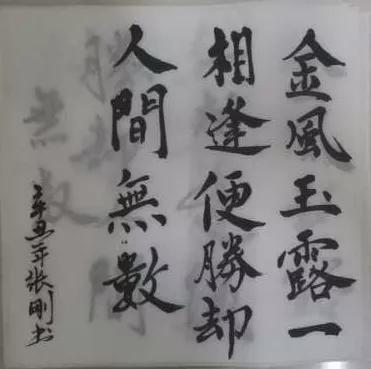 金風玉露一
相逢便勝却
人間無數
辛丑年張剛书